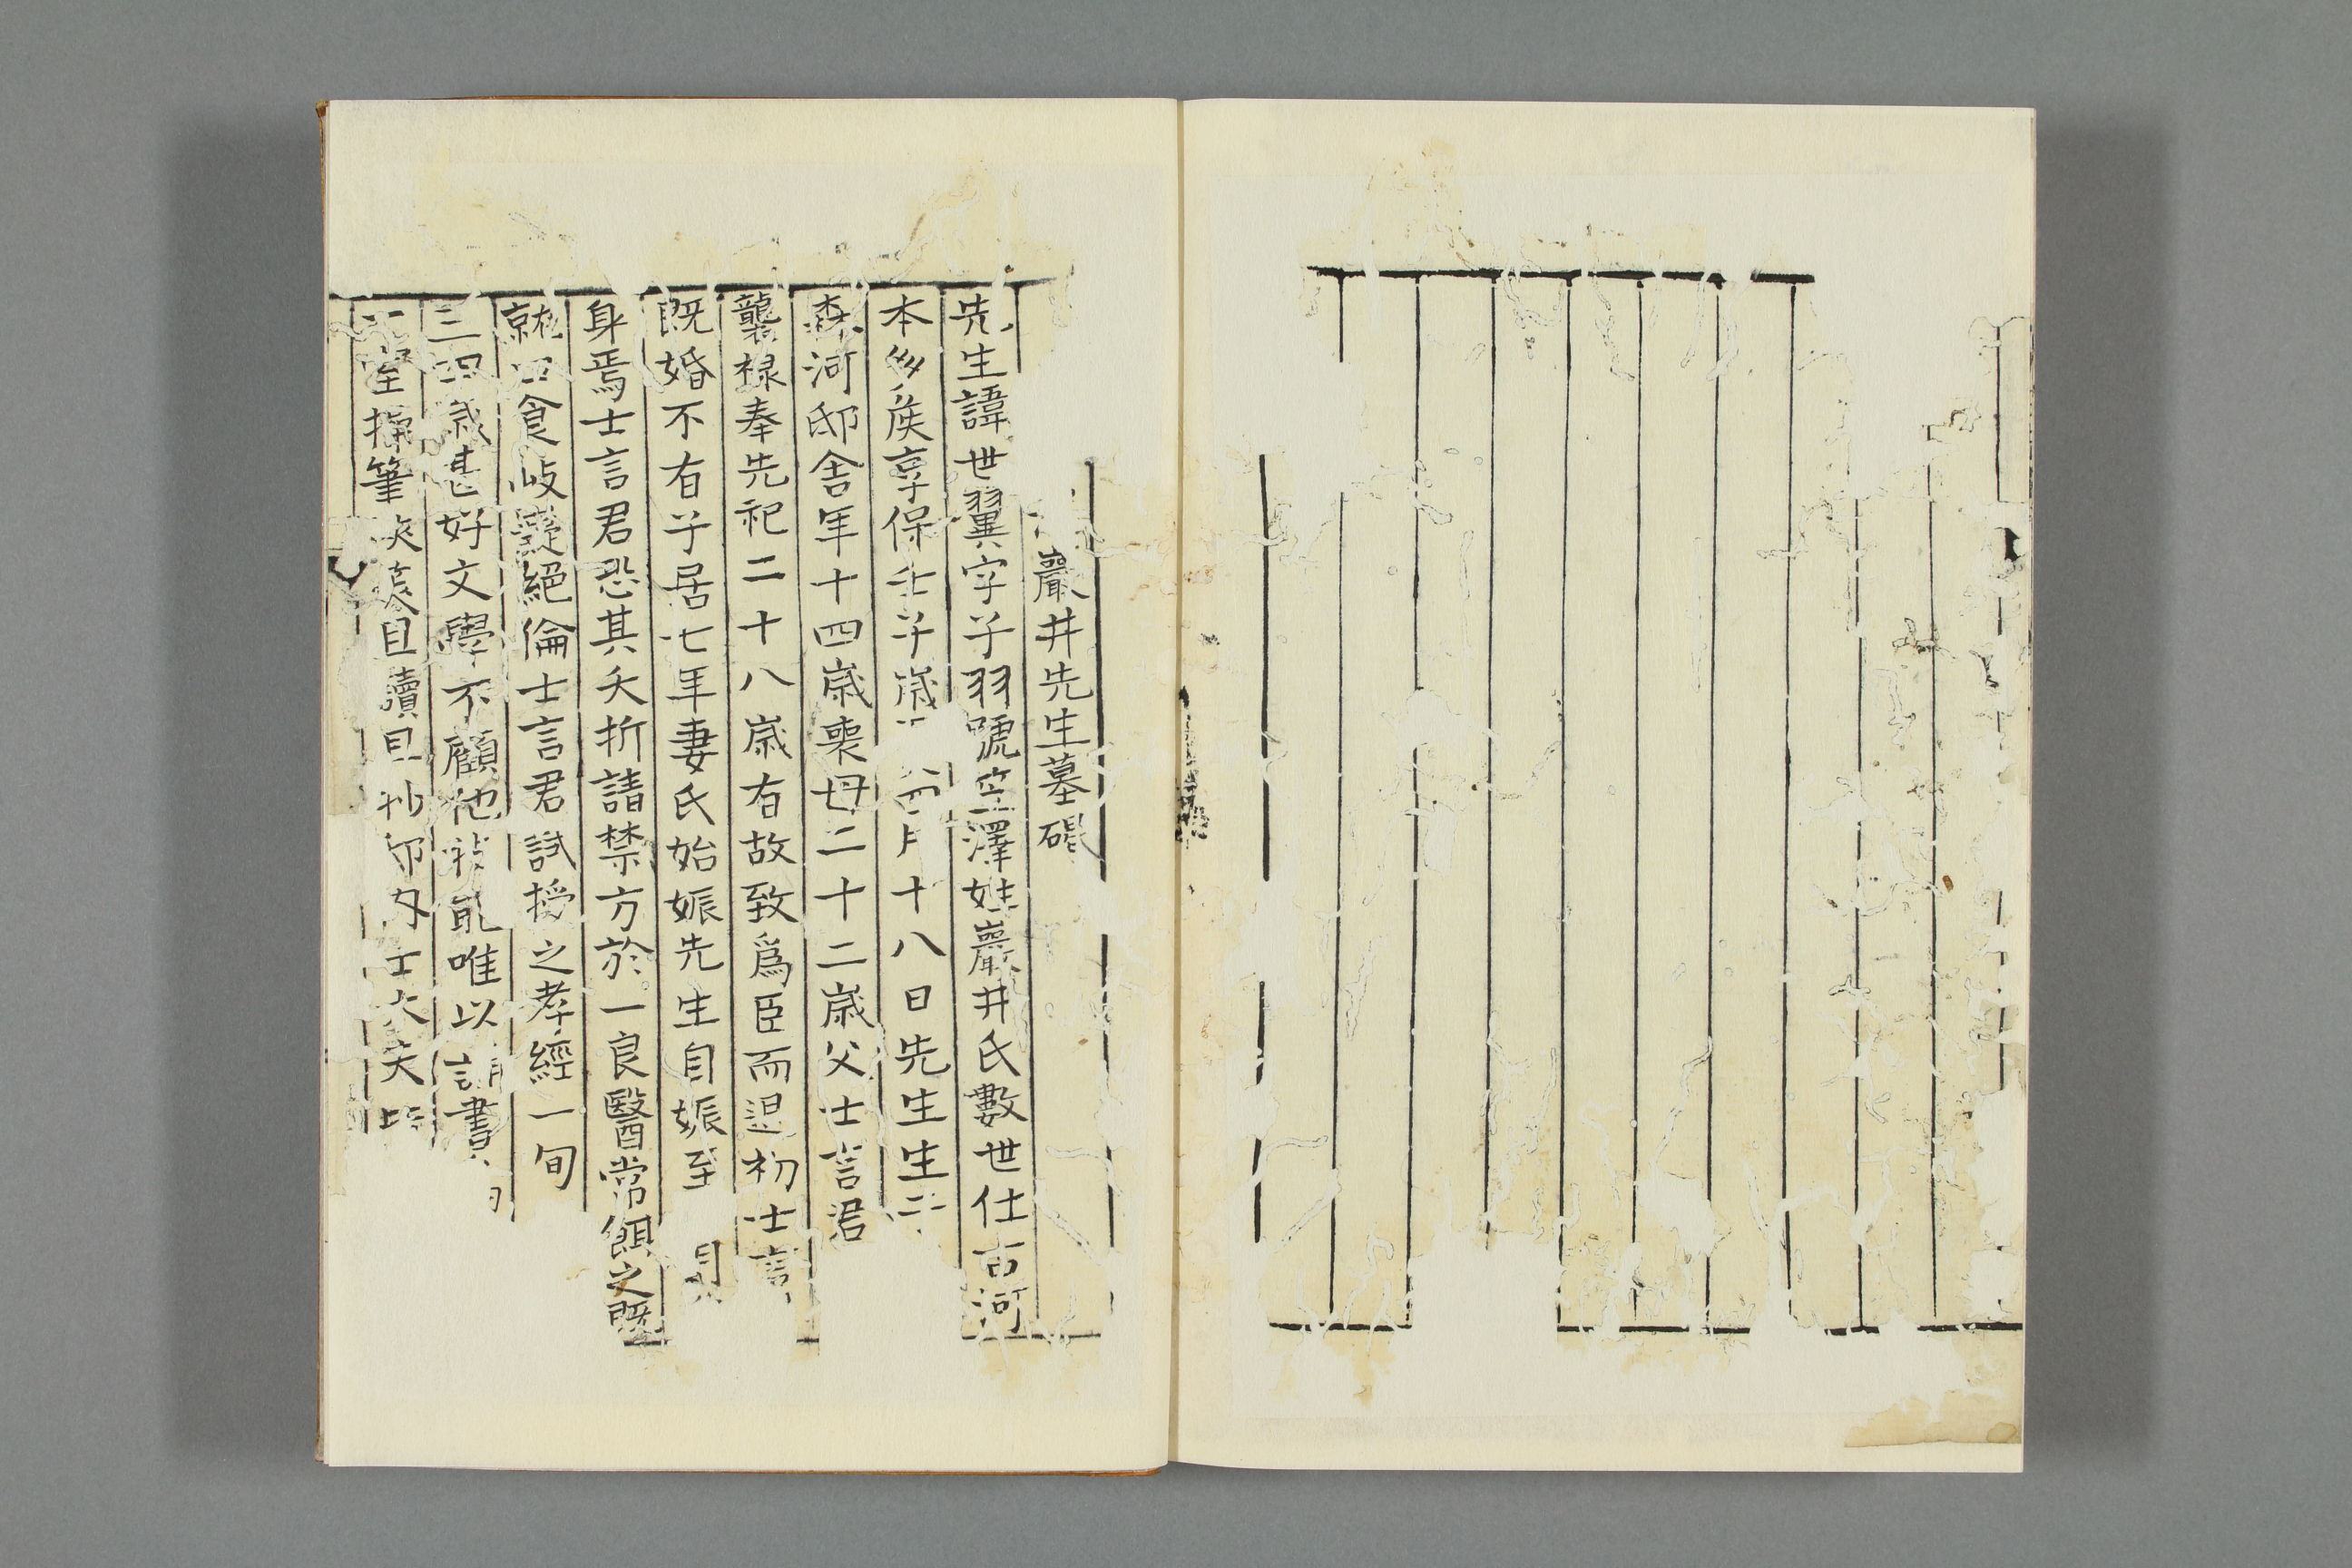 巖井先生墓碣
先生諱世翼字子羽號空澤姓巖井氏數世仕古河
本多矦享保壬子歲四月十八日先生生
森河邸舍年十四歲喪母二十二歲父士言君
襲祿奉先祀二十八歲有故致爲臣而退初士言
既婚不有子居七年妻氏始娠先生自娠至
身焉士言君恐其夭折請禁方於一良醫常餌之既
就口食岐嶷絕倫士言君試授之孝經一旬
三四歲甚好文學不顧他唯以書
室操筆且讀且抄士大夫